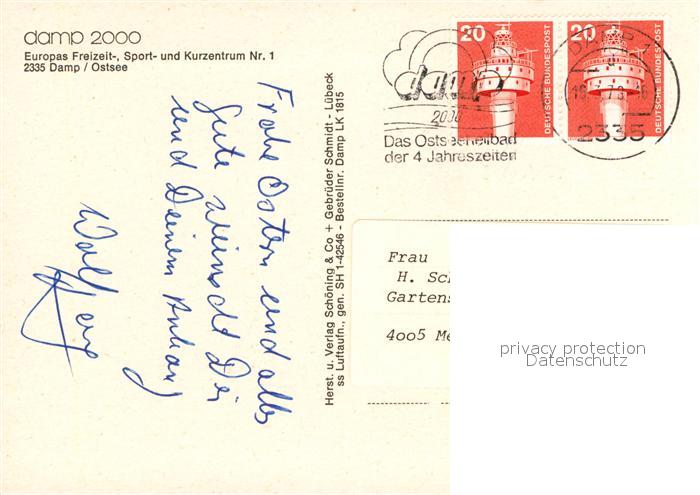 damp 2000
Europas Freizeit-, Sport- und Kurzentrum Nr. 1
2335 Damp / Ostsee
Frohe Ostern und alles
Gute wünscht Dir
und Deinem Anhang
Wolfgang
Herst. u. Verlag Schöning & Co + Gebrüder Schmidt - Lübeck
ss Luftaufn., gen. SH 1-42546 - Bestellnr. Damp LK 1815
20
DEUTSCHE BUNDESPOST
20
DEUTSCHE BUNDESPOST
damp
2000
Das Ostseeheilbad
der 4 Jahreszeiten
2335
Frau
H. Sc
Gartens
4005 Me
privacy protection
Datenschutz